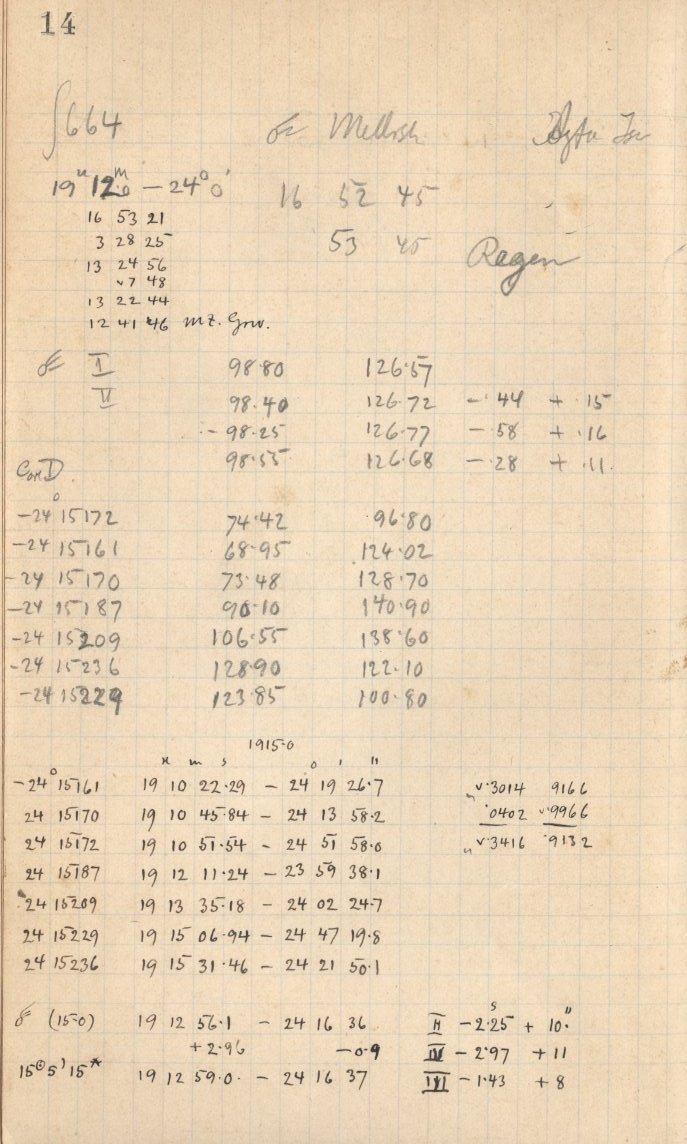 14
664 Mellish
19ʰ 12ᵐ — 24° 0′ 16 52 45
16 53 21
3 28 25 53 45 Regen
13 24 56
7 48
13 22 44
12 41 46 mz. Grw.
I 98.80 126.57
II 98.40 126.72 — .44 + .15
98.25 126.77 — .58 + .16
98.55 126.68 — .28 + .11
Con D.
−24° 15172 74.42 96.80
−24 15161 68.95 124.02
−24 15170 73.48 128.70
−24 15187 90.10 140.90
−24 15209 106.55 138.60
−24 15236 128.90 122.10
−24 15229 123.85 100.80
1915.0
H m s ° ′ ″
−24° 15161 19 10 22.29 — 24 19 26.7 .3014 9166
24 15170 19 10 45.84 — 24 13 58.2 .0402 .9966
24 15172 19 10 51.54 — 24 51 58.0 .3416 .9132
24 15187 19 12 11.24 — 23 59 38.1
24 15209 19 13 35.18 — 24 02 24.7
24 15229 19 15 06.94 — 24 47 19.8
24 15236 19 15 31.46 — 24 21 50.1
(15.0) 19 12 56.1 — 24 16 36 II −2.25ˢ + 10.″
+2.96 −0.9 IV −2.97 +11
19 12 59.0. — 24 16 37 III −1.43 +8